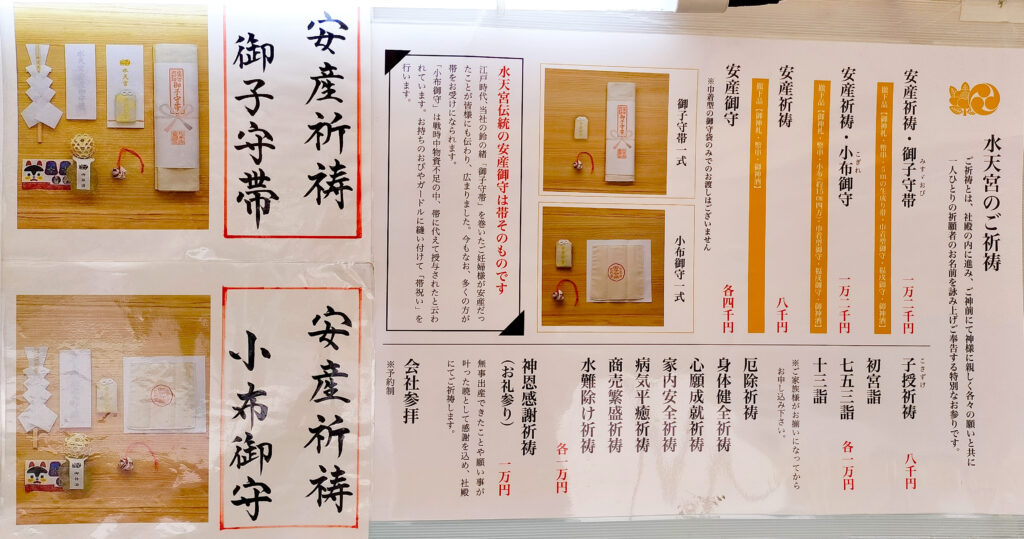 水天宮のご祈祷
ご祈祷とは、社殿の内に進み、ご神前にて神様に親しく各々の願いと共に
一人ひとりの祈願者のお名前を詠み上げご奉告する特別なお参りです。
安産祈祷・御子守帯
みすゞおび
一万二千円
安産祈祷・小布御守
こぎれ
一万二千円
安産祈祷
八千円
撤上品【御神札・幣串・御神酒】
安産御守
各四千円
※巾着型の御守袋のみでのお渡しはございません
御子守帯一式
小布御守一式
水天宮伝統の安産御守は帯そのものです
江戸時代、当社の鈴の緒「御子守帯」を巻いたご妊婦様が安産だっ
たことが皆様にも伝わり、広まりました。今もなお、多くの方が
帯をお受けになられます。
「小布御守」は戦時中物資不足の中、帯に代えて授与されたと云わ
れています。お持ちのおびやガードルに縫い付けて「帯祝い」を
行います。
子授祈祷
こさずけ
八千円
初宮詣
七五三詣
十三詣
各一万円
※ご家族様がお揃いになってから
お申し込み下さい。
厄除祈祷
身体健全祈祷
心願成就祈祷
家内安全祈祷
病気平癒祈祷
商売繁盛祈祷
水難除け祈祷
各一万円
神恩感謝祈祷
(お礼参り)
一万円
無事出産できたことや願い事が
叶った暁として感謝を込め、社殿
にてご祈祷します。
会社参拝
※予約制
安産祈祷
御子守帯
安産祈祷
小布御守